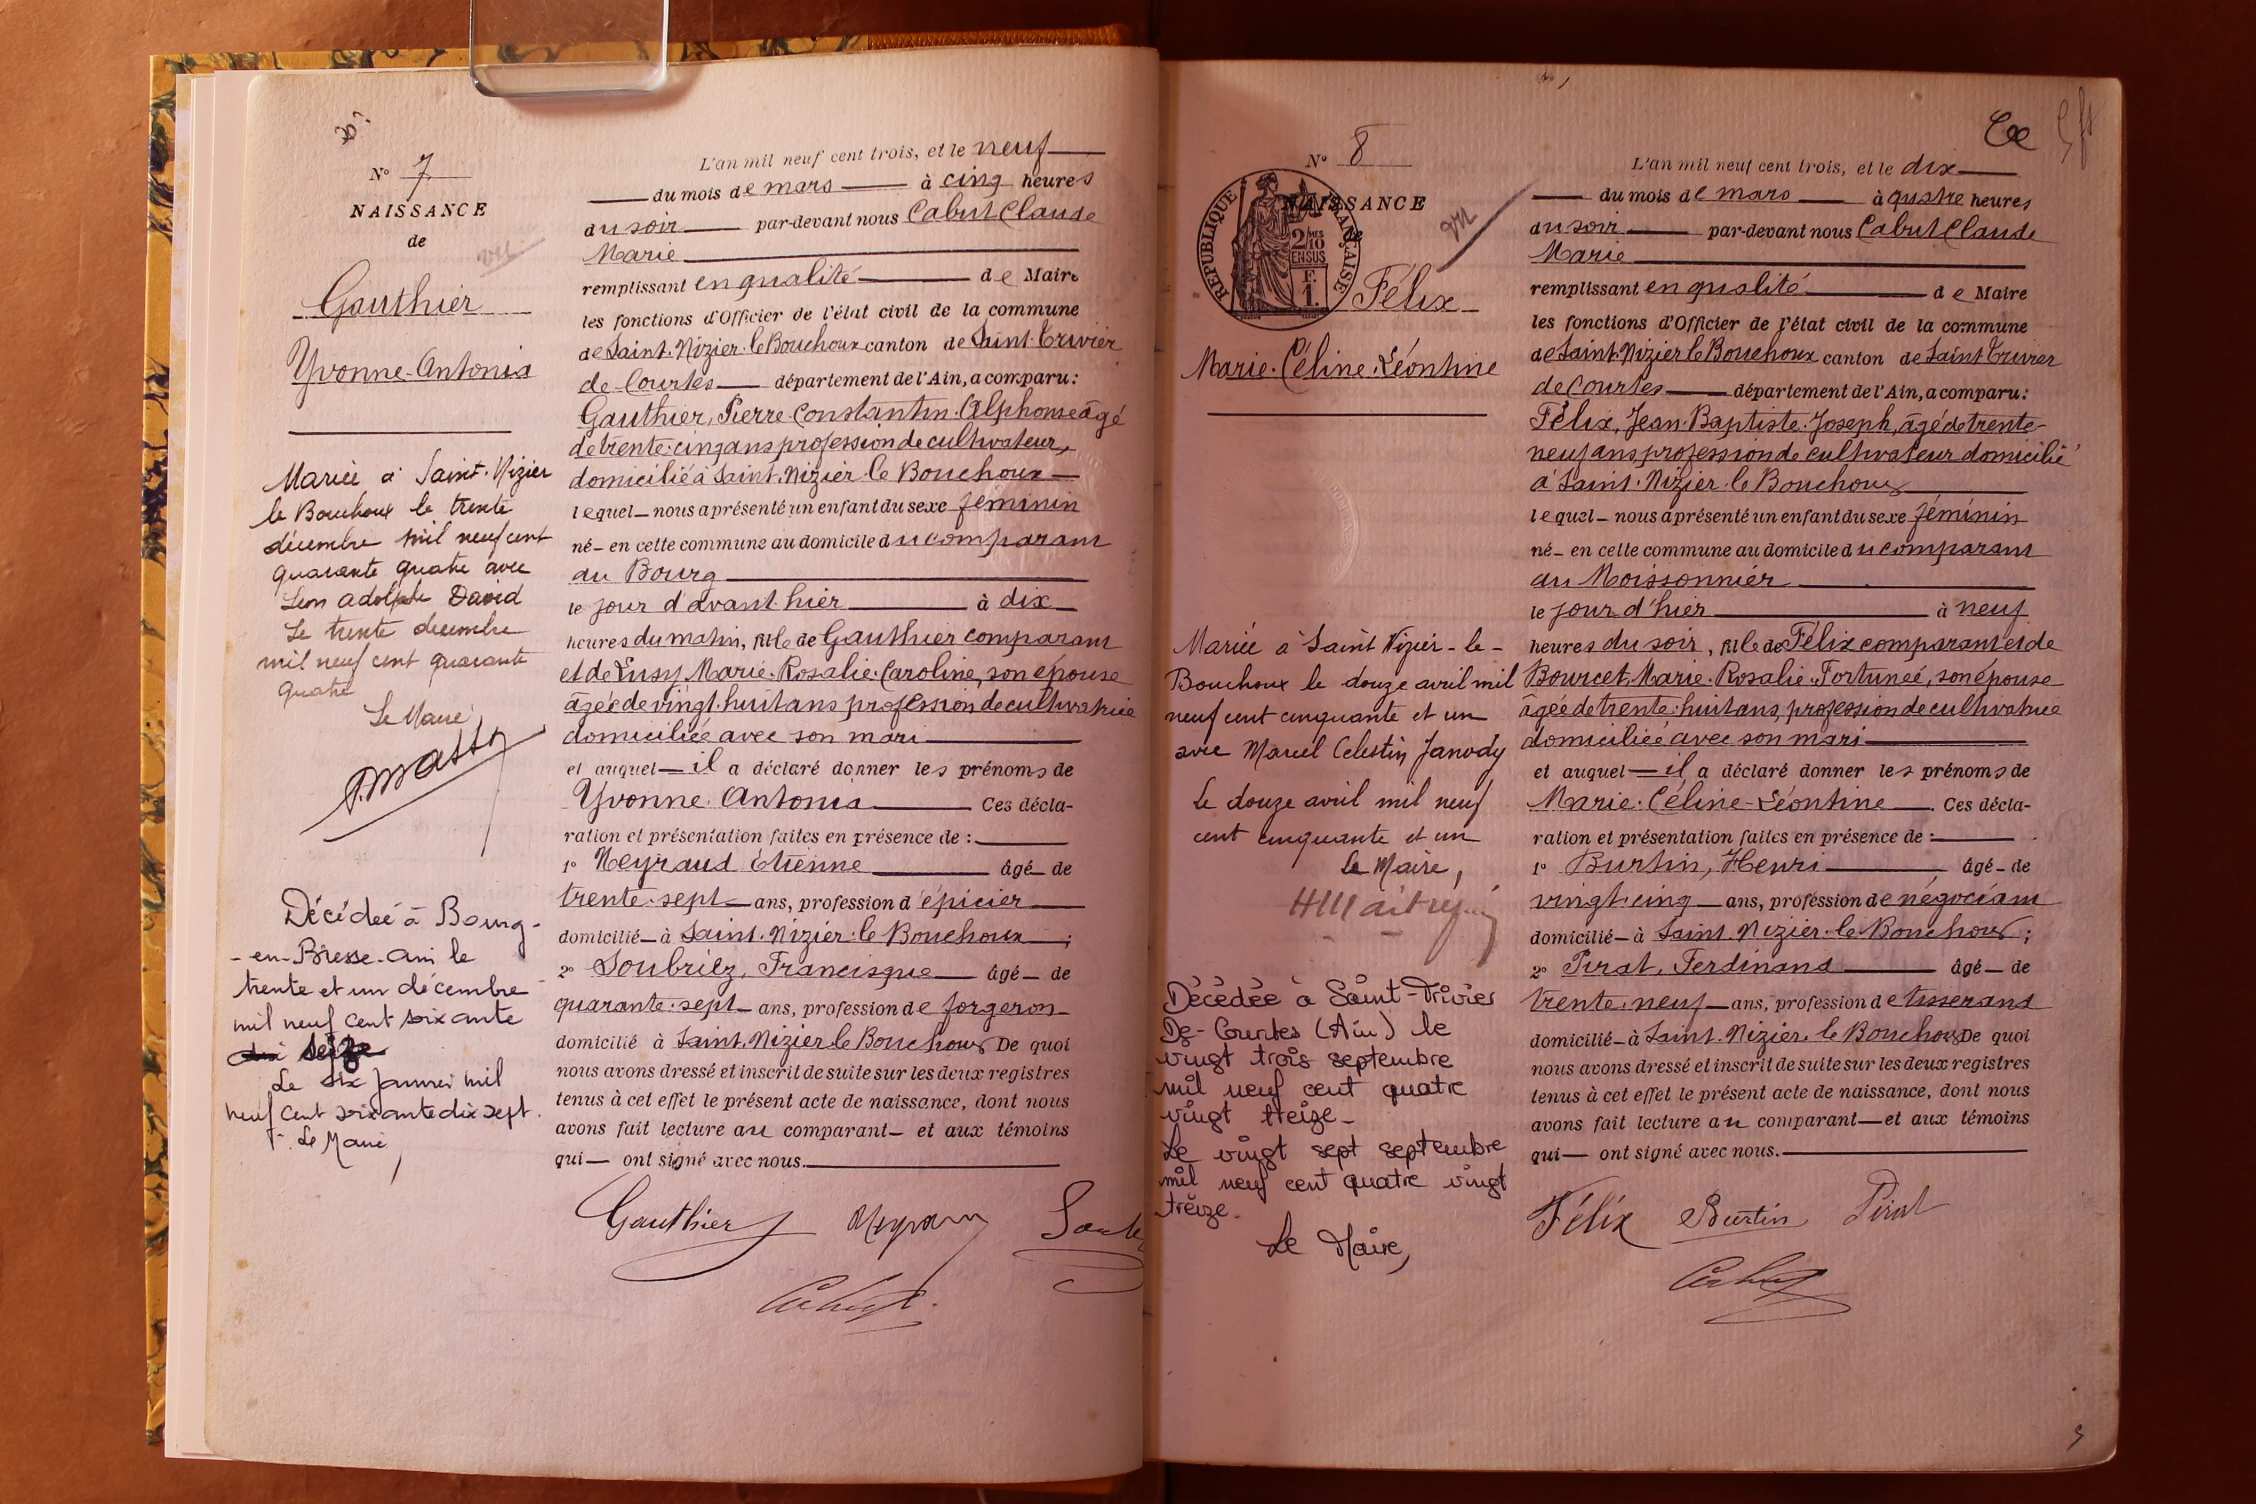 N° 7
NAISSANCE
de
vu
Gauthier
Yvonne-Antonia
Mariée à Saint-Nizier
le Bouchoux le trente
décembre mil neuf cent
quarante quatre avec
Léon adolphe David
Le trente decembre
mil neuf cent quarante
quatre
Le Maire
Décédée à Bourg-
-en-Bresse-Ain le
trente et un décembre
mil neuf cent soixante
seize
Le six Janvier mil
neuf cent soixante dix sept.
Le Maire,
L'an mil neuf cent trois, et le neuf
du mois de mars à cinq heures
du soir par-devant nous Cabut Claude
Marie
remplissant en qualité de Maire
les fonctions d'Officier de l'état civil de la commune
de Saint-Nizier-le Bouchoux canton de Saint-Trivier
de-Courtes département de l'Ain, a comparu:
Gauthier, Pierre-Constantin-Alphonse âgé
de trente-cinq ans profession de cultivateur,
domicilié à Saint-Nizier-le Bouchoux
lequel nous a présenté un enfant du sexe féminin
né en cette commune au domicile du comparant
au Bourg
le jour d'avant-hier à dix
heures du matin, fille de Gauthier comparant
et de Lusy, Marie-Rosalie-Caroline, son épouse
âgée de vingt-huit ans profession de cultivatrice
domiciliée avec son mari
et auquel il a déclaré donner les prénoms de
Yvonne-Antonia Ces décla-
ration et présentation faites en présence de :
1° Neyraud Etienne âgé de
trente-sept ans, profession d'épicier
domicilié à Saint-Nizier-le Bouchoux ;
2° Soubrilz, Francisque âgé de
quarante-sept ans, profession de forgeron
domicilié à Saint-Nizier-le Bouchoux De quoi
nous avons dressé et inscrit de suite sur les deux registres
tenus à cet effet le présent acte de naissance, dont nous
avons fait lecture au comparant et aux témoins
qui ont signé avec nous.
Gauthier
Cabut
N° 8
NAISSANCE
de
RÉPUBLIQUE FRANÇAISE
2/10 MES
EN SUS
F.
1.
vu
Félix
Marie-Céline-Léontine
Mariée à Saint Nizier-le-
Bouchoux le douze avril mil
neuf cent cinquante et un
avec Marcel Celestin Janody
Le douze avril mil neuf
cent cinquante et un
Le Maire,
Décédée à Saint-Trivier
De-Courtes (Ain) le
vingt trois septembre
mil neuf cent quatre
vingt treize-
Le vingt sept septembre
mil neuf cent quatre vingt
treize-
Le Maire,
L'an mil neuf cent trois, et le dix
du mois de mars à quatre heures
du soir par-devant nous Cabut Claude
Marie
remplissant en qualité de Maire
les fonctions d'Officier de l'état civil de la commune
de Saint-Nizier le Bouchoux canton de Saint Trivier
de Courtes département de l'Ain, a comparu:
Félix, Jean-Baptiste-Joseph, âgé de trente-
neuf ans profession de cultivateur domicilié
à Saint-Nizier-le Bouchoux
lequel nous a présenté un enfant du sexe féminin
né en cette commune au domicile du comparant
au Moissonnier
le jour d'hier à neuf
heures du soir, fille de Félix comparant et de
Bourcet, Marie-Rosalie-Fortuneé, son épouse
âgée de trente-huit ans, profession de cultivatrice
domiciliée avec son mari
et auquel il a déclaré donner les prénoms de
Marie-Céline-Léontine. Ces décla-
ration et présentation faites en présence de :
1° Burtin, Henri âgé de
vingt-cinq ans, profession de négociant
domicilié à Saint-Nizier-le Bouchoux ;
2° Pirat, Ferdinand âgé de
trente-neuf ans, profession de tisserand
domicilié à Saint-Nizier-le Bouchoux De quoi
nous avons dressé et inscrit de suite sur les deux registres
tenus à cet effet le présent acte de naissance, dont nous
avons fait lecture au comparant et aux témoins
qui ont signé avec nous.
Félix Burtin Pirat
Cabut